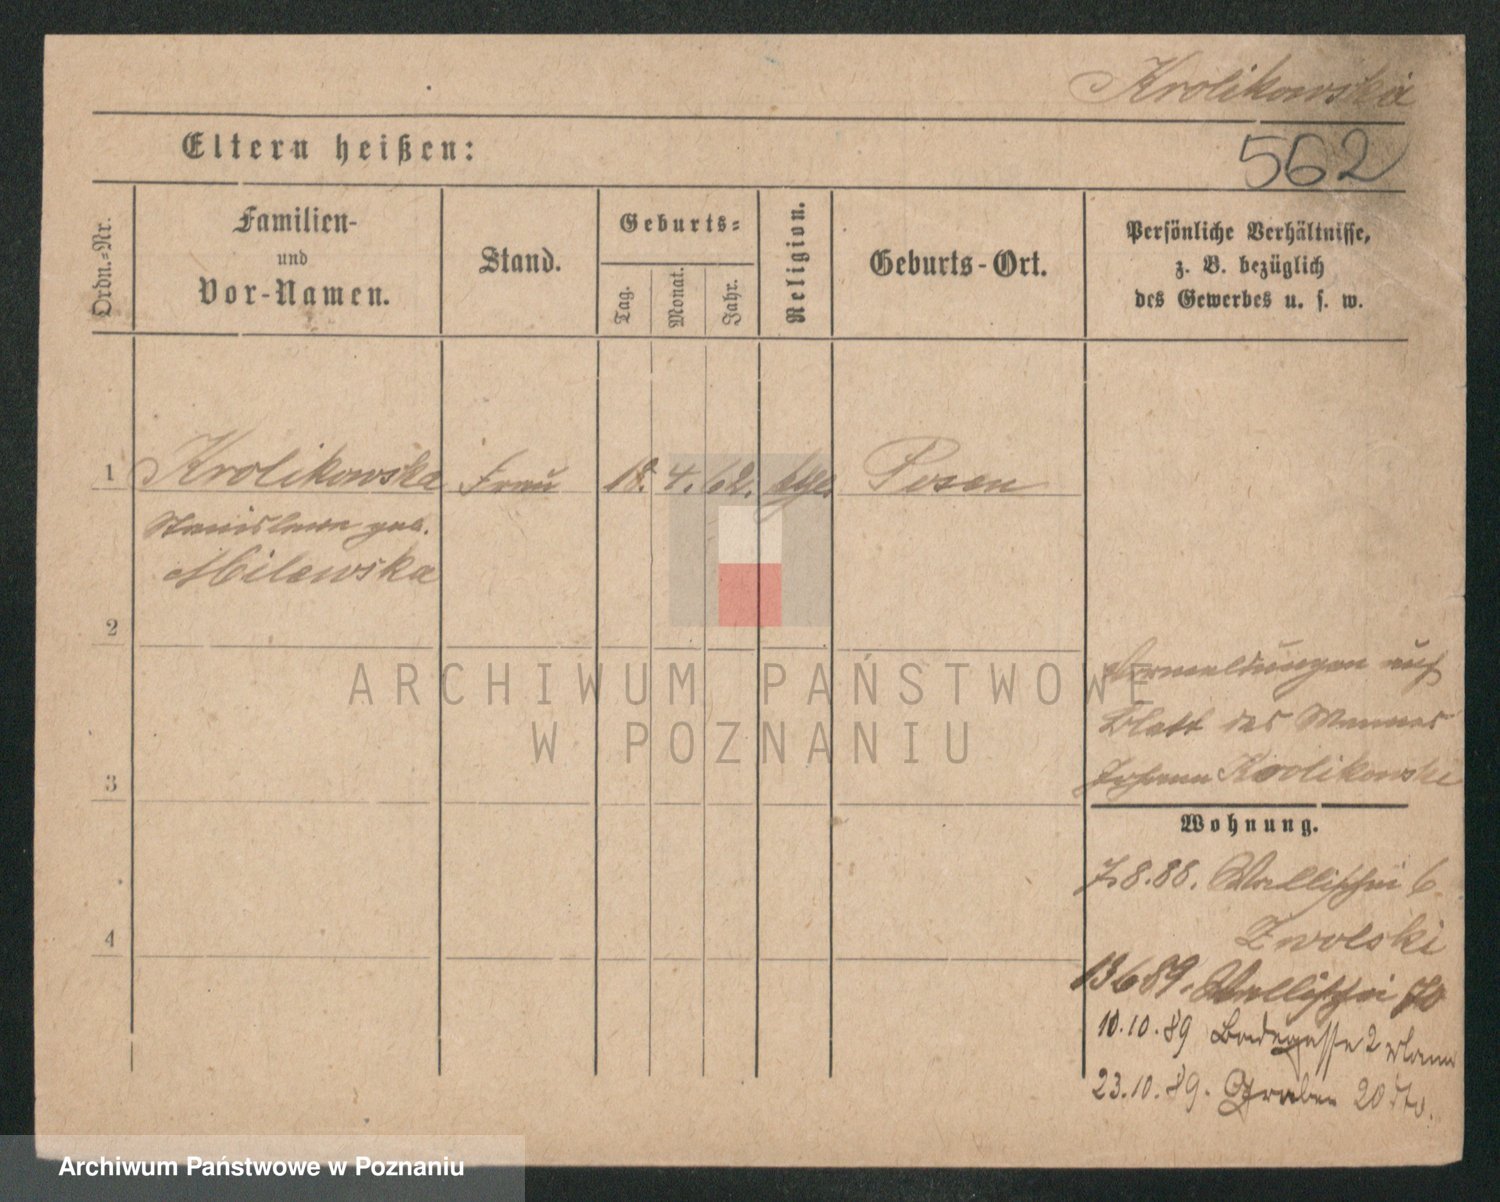 Krolikowska
Eltern heißen:
562
Ordn.-Nr.
Familien-
und
Vor-Namen.
Stand.
Geburts-
Tag.
Monat.
Jahr.
Religion.
Geburts-Ort.
Persönliche Verhältnisse,
z. B. bezüglich
des Gewerbes u. s. w.
1 Krolikowska Frau 18. 4. 62. Posen
Stanislawa geb.
Milewska
2
Vormeldungen auf
Blatt des Mannes
Johann Krolikowski
3
Wohnung.
7.8.88. Wallischei 6.
Zwolski
4
13 6 89. Wallischei 70
10.10.89 Badegasse 2
23.10.89. Graben 20 dto.
ARCHIWUM PAŃSTWOWE
W POZNANIU
Archiwum Państwowe w Poznaniu